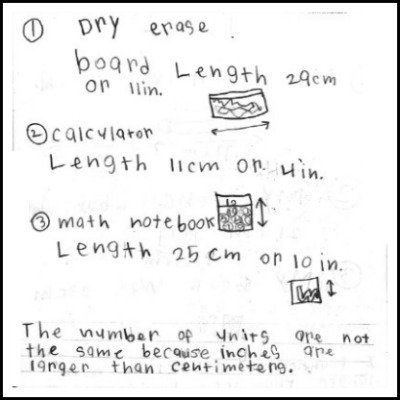 ① Dry erase
board Length 29cm
or 11in.
② calculator
Length 11cm or 4in.
③ math notebook
Length 25 cm or 10 in.
The number of units are not
the same because inches are
larger than centimeters.